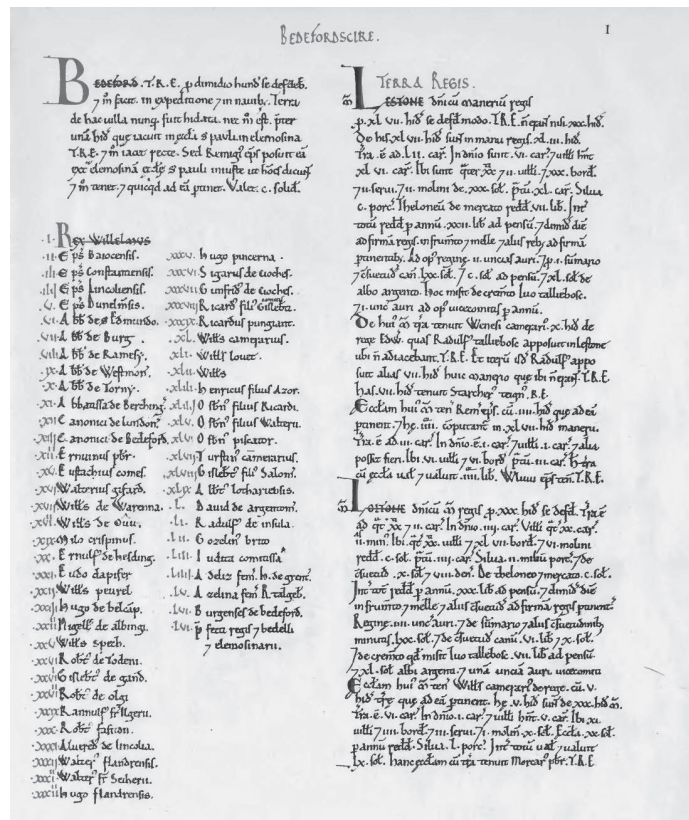 BEDEFORDSCIRE.
I
BEDEFORD. T.R.E. p dimidio hund se defdeb.
7 m facit. in expeditione 7 in nauib. Terra
de hac uilla nunq fuit hidata. nec m est. pter
una hid que iacuit in eccla S pauli in elemosina
T.R.E. 7 m iacet recte. Sed Remigi eps posuit ea
ext elemosina eccle S pauli iniuste ut hoes dicunt
7 m tenet. 7 quicqd ad ea ptinet. Valet. c. solid.
.I. Rex Willelmus
.II. Eps Baiocensis.
.III. Eps Constantiensis.
.IIII. Eps Lincoliensis.
.V. Eps Dunelmsis.
.VI. Abb de S Edmundo.
.VII. Abb de Burg.
.VIII. Abb de Ramesy.
.IX. Abb de Westmon.
.X. Abb de Torny.
.XI. Abbatissa de Berching.
.XII. Canonici de London.
.XIII. Canonici de Bedeford.
.XIIII. Ernuinus pbr.
.XV. Eustachius comes.
.XVI. Walterius gifard.
.XVII. Wills de Warenna.
.XVIII. Wills de Ou.
.XIX. Milo crispinus.
.XX. Ernulf de hesding.
.XXI. Eudo dapifer
.XXII. Wills peurel
.XXIII. Hugo de belcap.
.XXIIII. Nigell de albingi.
.XXV. Wills spech.
.XXVI. Robt de Todeni.
.XXVII. Gislebt de gand.
.XXVIII. Robt de olgi
.XXIX. Rannulf fr Ilgeru.
.XXX. Robt fafiton.
.XXXI. Aluered de lincolia.
.XXXII. Walter flandrensis.
.XXXIII. Walter fr Seiherii.
.XXXIIII. Hugo flandrensis.
.XXXV. Hugo pincerna.
.XXXVI. Sigarus de cioches.
.XXXVII. Gunfrid de cioches.
.XXXVIII. Ricard fili Gislebti
.XXXIX. Ricardus pungiant.
.XL. Wills camerarius.
.XLI. Wills louet.
.XLII. Wills
.XLIII. Henricus filius Azor.
.XLIIII. Osbn filius Ricardi.
.XLV. Osbn filius Walterii.
.XLVI. Osbn piscator.
.XLVII. Turstin camerarius.
.XLVIII. Gislebt fili Salom.
.XLIX. Albt lothariensis.
.L. Dauid de argenton.
.LI. Radulf de insula.
.LII. Gozelin brito
.LIII. Iudita comitissa
.LIIII. Adeliz fem. H. de grent.
.LV. Azelina fem R. tailgeb.
.LVI. Burgenses de bedeford.
.LVII. p fecti regis 7 bedelli
7 elemosinarii.
TERRA REGIS.
m LESTONE dnicu maneriu regis
p. XL.VII. hid se defd modo. T.R.E. n erat nisi. XXX. hid.
De his. XL.VII. hid sunt in manu regis. XL.III. hid.
Tra. e. ad. L.II. car. In dnio sunt. VI. car. 7 uilli hnt
XL.VI. car. Ibi sunt quater XX. 7 II. uilli. 7 XXX. bord.
7 II. serui. 7 II. molini de. XXX. sol. ptu. XL. car. Silua
c. porc. Theloneu de mercato redd. VII. lib. Int
totu redd p annu. XXII. lib ad pensu. 7 dimid die
ad firma regis in frumto 7 melle 7 aliis reb ad firma
ptinentib. Ad op regine. II. uncias auri. 7 p. I. sumario
7 csuetud can. LXX. sol. 7 c. sol ad pensu. 7 XL. sol de
albo argento. hoc misit de cremto Iuo taillebosc.
7 I. unc auri ad op uicecomitis p annu.
De hui m tra tenuit Wenesi camerari. X. hid de
rege Edw. quas Radulf taillebosc apposuit in lestone
ubi n adiacebant. T.R.E. Et iteru isd Radulf appo
suit alias VII. hid huic manerio que ibi n erant. T.R.E.
Has. VII. hid tenuit Starcher teign. R.E.
Eccam hui m ten Remi eps. cu. IIII. hid que ad ea
ptinent. 7 he. IIII. coputant in XL.VII. hid manerii.
Tra. e ad. III. car. In dnio. e. I. car. 7 uilli. I. car. 7 alia
posset fieri. Ibi. VI. uilli 7 VI. bord. ptu. III. car. H tra
cu eccla ual. 7 ualuit. IIII. lib. Wluui eps ten. T.R.E.
m LOITONE dnicu m regis. p. XXX. hid se defd. Tra e
ad qt XX 7 II. car. In dnio. IIII. car. Villi qt XX. car.
II. min. Ibi. qt XX. uilli. 7 XL.VII. bord. 7 VI. molini
redd. c. sol. ptu. IIII. car. Silua. II. milibu porc. 7 de
csuetud. X. sol 7 VIII. den. De theloneo 7 mercato c. sol.
Int tot redd p annu. XXX. lib ad pensu. 7 dimid die
in frumto 7 melle 7 aliis csuetud ad firma regis ptinent.
Regine. IIII. unc auri. 7 de sumario 7 aliis csuetudinib
minutis. LXX. sol. 7 de csuetud canu. VI. lib 7 X. sol.
7 de cremto qd misit Iuo taillebosc. VII. lib ad pensu.
7 XL. sol albi argenti. 7 una uncia auri uicecomiti
Eccam hui m ten Wills camerari de rege. cu. V.
hid tre que ad ea ptinent. he. V. hid sunt de XXX. hid m.
Tra. e. VI. car. In dnio. I. car. 7 uilli hnt. V. car. Ibi XI.
uilli 7 IIII. bord. 7 III. serui. 7 I. molin. X. sol. Eccla. XX. sol.
p annu redd. Silua. L. porc. Int totu ual. 7 ualuit
LX. sol. Hanc eccam cu tra tenuit Morcar pbr. T.R.E.